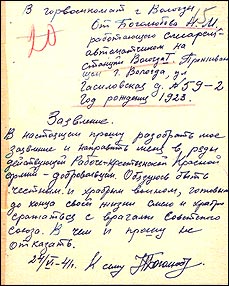 В горвоенкомат г. Вологды
От Боголюбова А. М.
работающего слесарем-
автоматчиком на
станции Вологда I. Проживаю-
щем г. Вологда, ул
д. №59-2
Год рождения 1923.
20
Заявление.
В настоящем прошу разобрать мое
заявление и направить меня в ряды
действующей Рабоче-крестьянской Красной
армии - добровольцем. Обязуюсь быть
честным и храбрым воином, готовым
до конца своей жизни смело и храбро
сражаться с врагами Советского
Союза. В чем и прошу не
отказать.
24/VI-41г. К сему